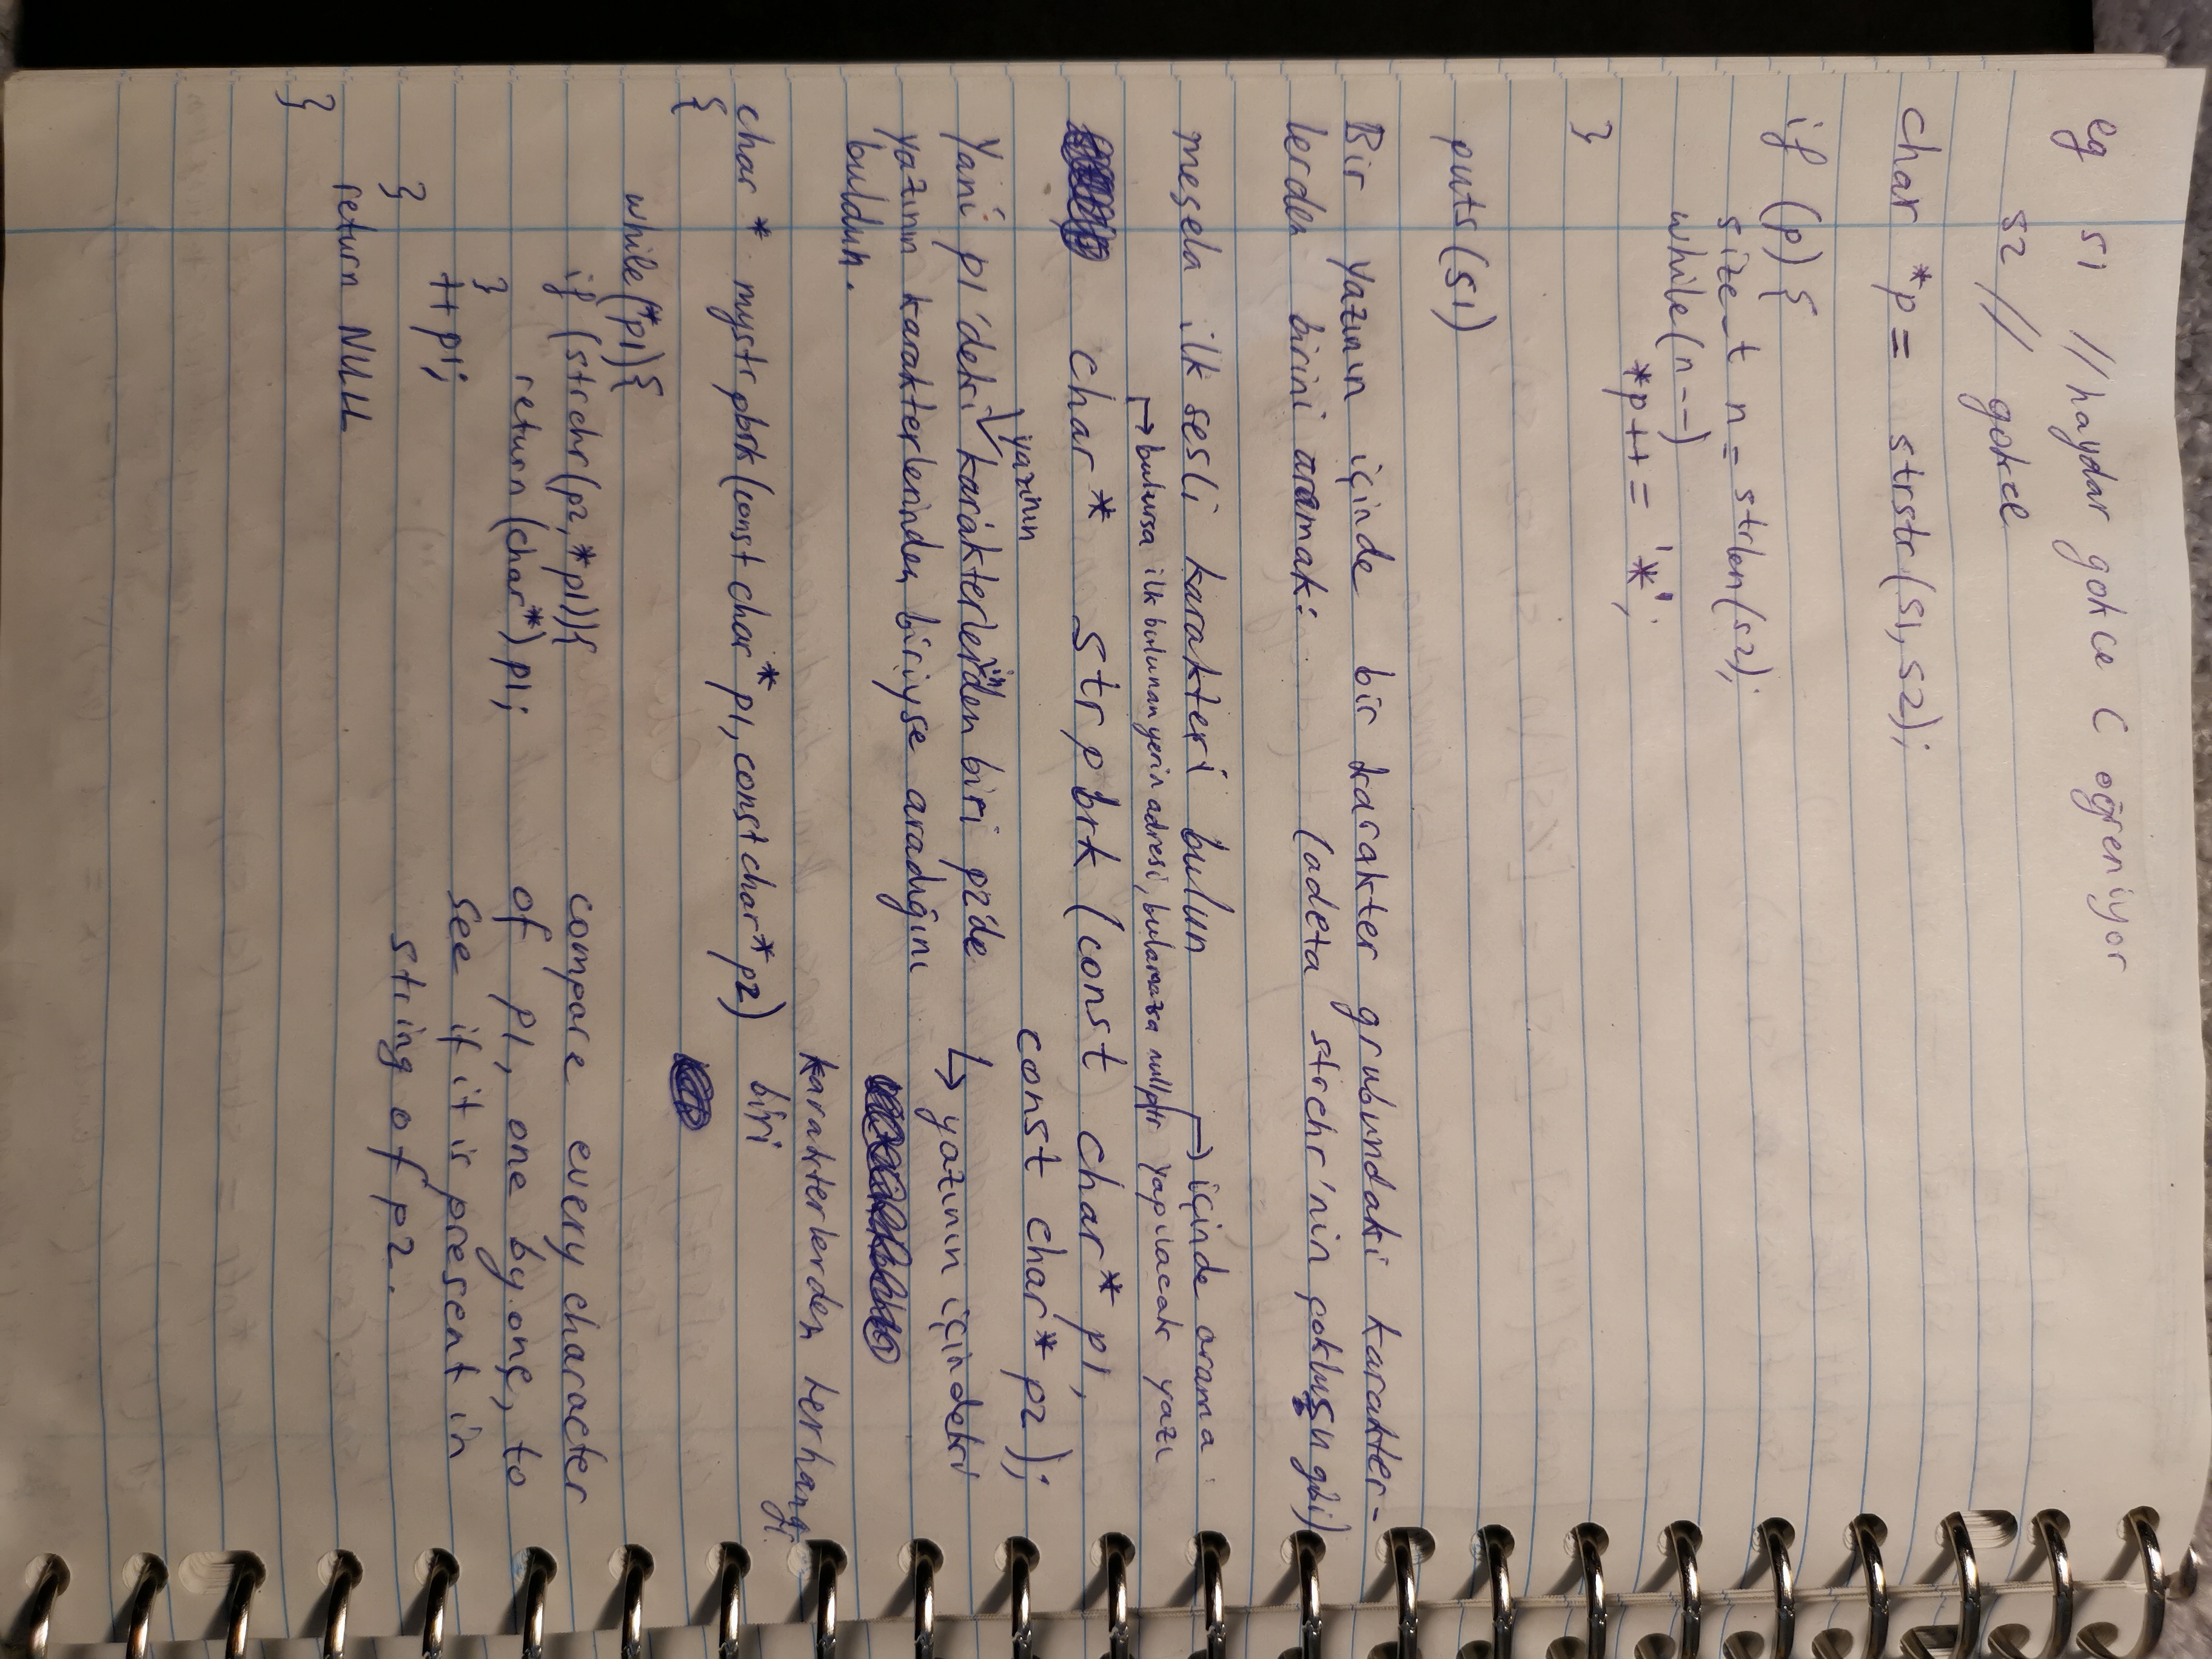 eg s1 //haydar gokce C oğreniyor
s2 // gokce
char *p = strstr(s1, s2);
if (p) {
size_t n = strlen(s2);
while(n--)
*p++ = '*';
}
puts(s1)
Bir yazının içinde bir karakter grubundaki karakter-
lerden birini aramak: (adeta strchr'nin çokluşu gibi)
meşela ilk sesli karakteri bulun
→ içinde arama
yapılacak yazı
→ bulursa ilk bulunan yerin adresi, bulamazsa nullptr
char* strpbrk (const char* p1,
const char* p2);
yazının
Yani p1'deki karakterlerinden biri p2'de
yazının karakterlerinden biriyse aradığını
buldun.
↳ yazının içindeki
karakterlerden herhangi
biri
char * mystrpbrk(const char* p1, const char* p2)
{
while(*p1){
if (strchr(p2, *p1)){
return (char*) p1;
}
++p1;
}
return NULL
}
compare every character
of p1, one by one, to
see if it is present in
string of p2.